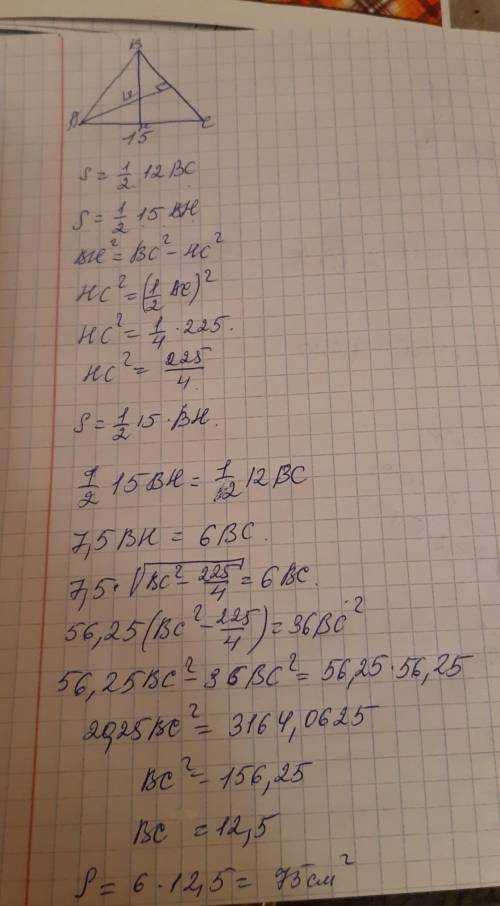 B
12
A
C
15
S = 1/2 12 BC
S = 1/2 · 15 BH
BH² = BC² - HC²
HC² = (1/2 AC)²
HC² = 1/4 · 225.
HC² = 225/4.
S = 1/2 15 · BH.
1/2 15 BH = 1/2 12 BC
7,5 BH = 6 BC.
7,5 · √(BC² - 225/4) = 6 BC.
56,25 (BC² - 225/4) = 36 BC²
56,25 BC² - 36 BC² = 56,25 · 56,25
20,25 BC² = 3164,0625
BC² = 156,25
BC = 12,5
S = 6 · 12,5 = 75 см²